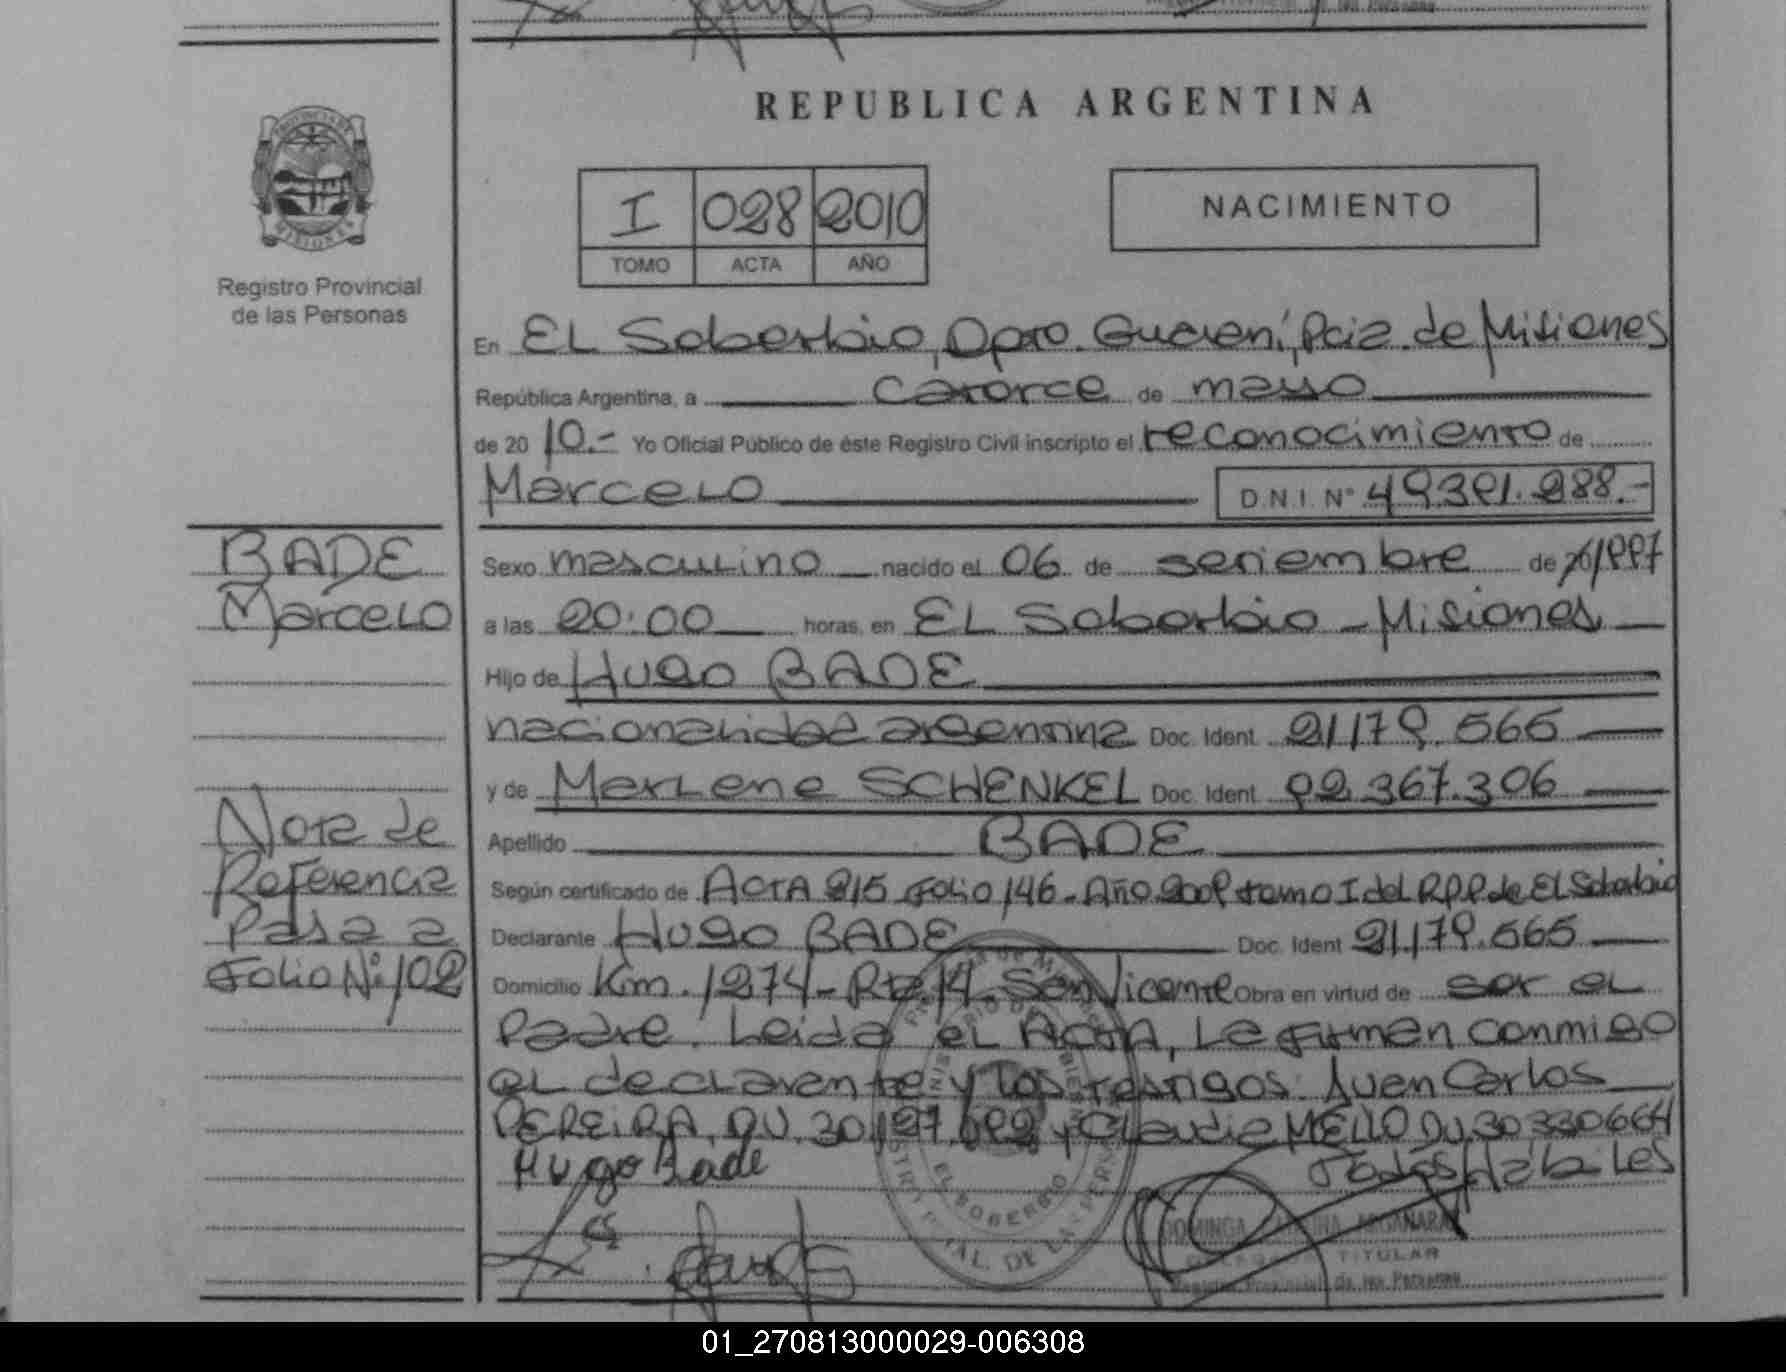 REPUBLICA ARGENTINA
PROVINCIA DE
MISIONES
Registro Provincial
de las Personas
I 028 2010
TOMO ACTA AÑO
NACIMIENTO
En EL Soberbio, Dpto. Guaraní, Pcia. de Misiones
República Argentina, a catorce de mayo
de 20 10.- Yo Oficial Público de éste Registro Civil inscripto el reconocimiento de
Marcelo D.N.I. Nº 49.391.288.-
BADE
Marcelo
Sexo masculino nacido el 06 de setiembre de 1997
a las 20:00 horas, en EL Soberbio - Misiones
Hijo de Hugo BADE
nacionalidad argentina Doc. Ident. 21.179.565
y de Marlene SCHENKEL Doc. Ident. 92.367.306
Apellido BADE
Según certificado de ACTA 215 Folio 146 - Año 2009 tomo I del R.P.P de El Soberbio
Declarante Hugo BADE Doc. Ident 21.179.565
Domicilio Km. 1274 - Rta. 14 San Vicente Obra en virtud de ser el
Padre. Leida el ACTA, La firman conmigo
el declarante y los testigos: Juan Carlos
PEREIRA, DU. 30.197.692 y Claudia MELLO DU 30330664
Todos Hábiles
Hugo Bade
Nota de
Referencia
Pasa a
Folio Nº 102
EL SOBERBIO
DOMINGA ARGAÑARAZ
TITULAR
Registro Provincial de las Personas
01_270813000029-006308